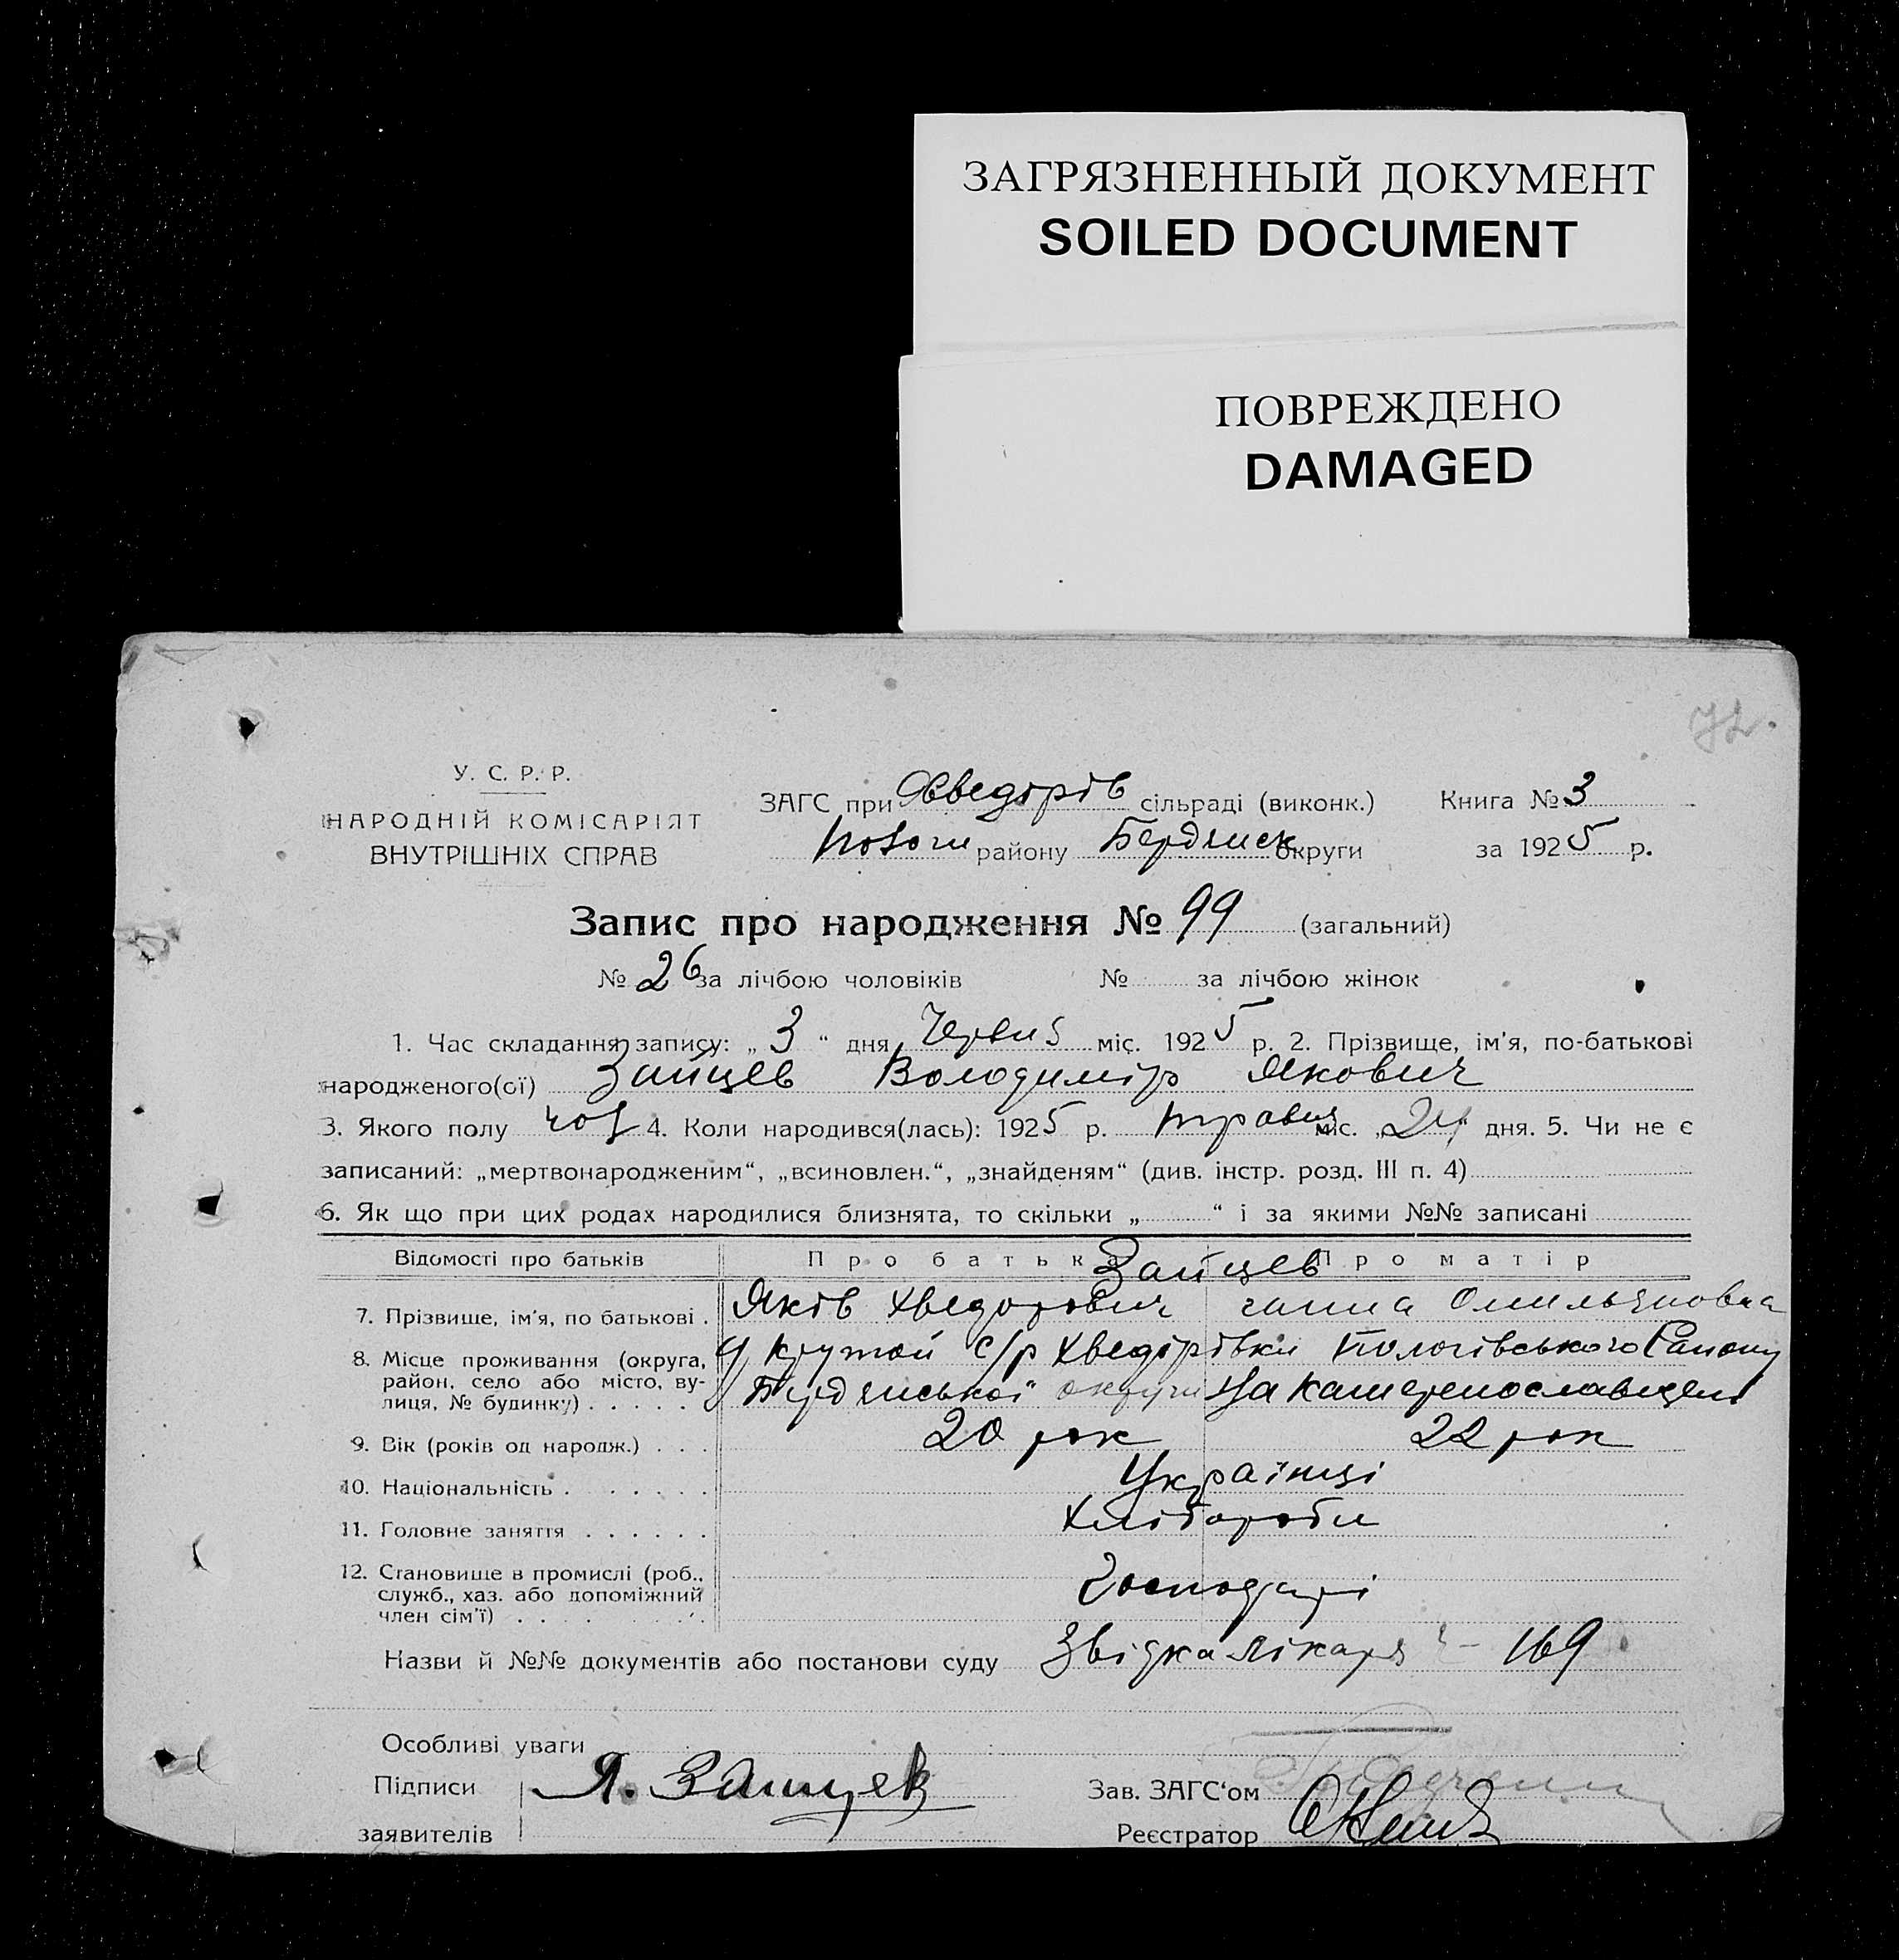 ЗАГРЯЗНЕННЫЙ ДОКУМЕНТ
SOILED DOCUMENT
ПОВРЕЖДЕНО
DAMAGED
У. С. Р. Р.
НАРОДНІЙ КОМІСАРІЯТ
ВНУТРІШНІХ СПРАВ
ЗАГС при Хведорів сільраді (виконк.) Книга № 3
Пологи району Бердянськ округи за 1925 р.
Запис про народження № 99 (загальний)
№ 26 за лічбою чоловіків № за лічбою жінок
1. Час складання запису: „ 3 “ дня Червня міс. 1925 р. 2. Прізвище, ім'я, по-батькові
народженого(ої) Зайцев Володимір Якович
3. Якого полу чол 4. Коли народився(лась): 1925 р. травня міс. „ “ дня. 5. Чи не є
записаний: „мертвонародженим“, „всиновлен.“, „знайденям“ (див. інстр. розд. III п. 4)
6. Як що при цих родах народилися близнята, то скільки „ “ і за якими №№ записані
Відомості про батьків Про батька Про матір
Зайцев
7. Прізвище, ім'я, по батькові . Яків Хведорович ганна Омильяновна
8. Місце проживання (округа, район, село або місто, вулиця, № будинку) . . . . . Крутой с/р Хведорівки Пологівського Району
Бердянської округи на Катеренославщені
9. Вік (років од народж.) . . . 20 рок 22 рок
10. Національність . . . . . . . Українці
11. Головне заняття . . . . . . Хлібороби
12. Становище в промислі (роб., служб., хаз. або допоміжний член сім'ї) . . . . Господарі
Назви й №№ документів або постанови суду Звідка лікаря – 169
Особливі уваги
Підписи Я. Зайцев
Зав. ЗАГС'ом
заявителів
Реєстратор